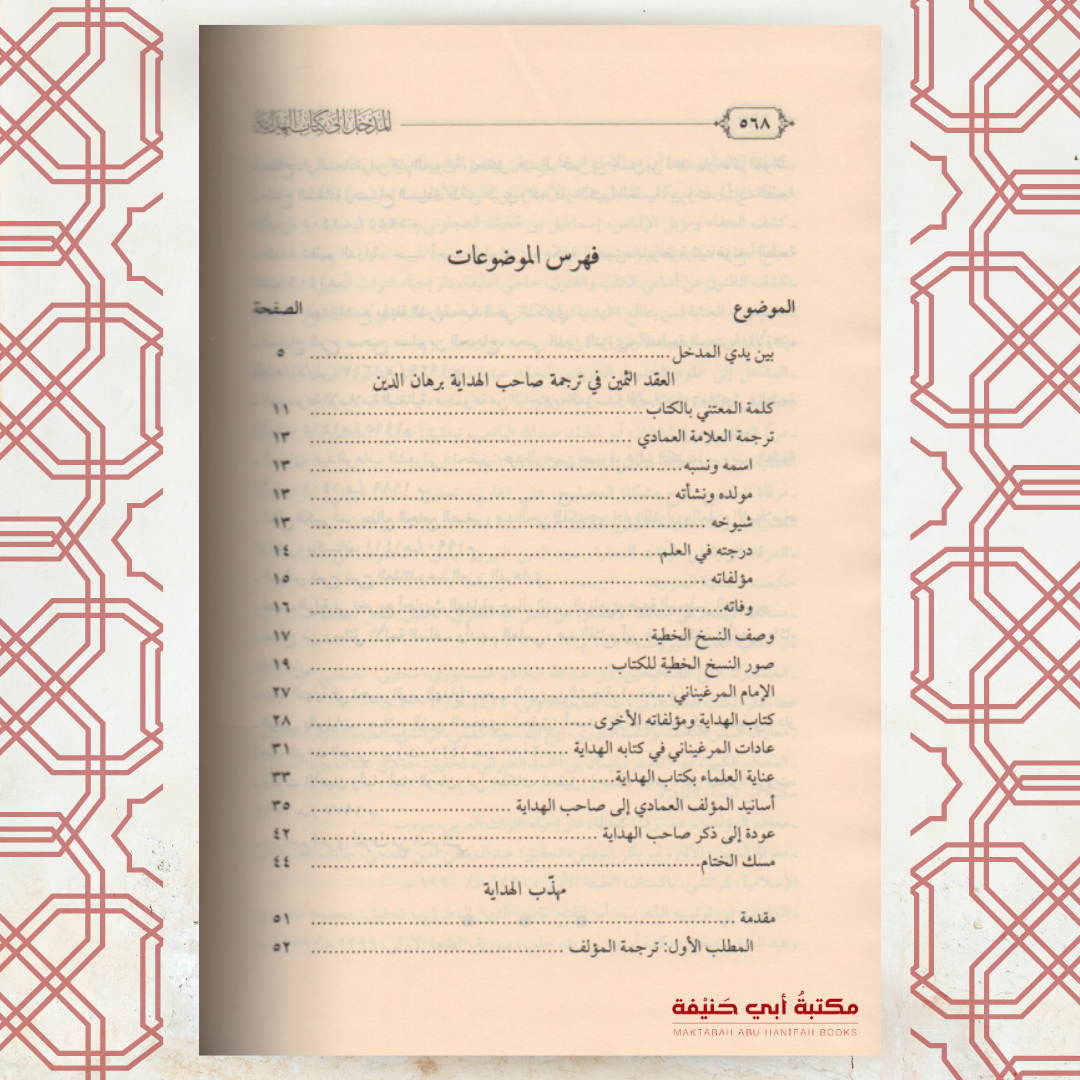 ٥٦٨ المدخل إلى كتاب الهداية
فهرس الموضوعات
الموضوع الصفحة
بين يدي المدخل ................ ٥
العقد الثمين في ترجمة صاحب الهداية برهان الدين
كلمة المعتني بالكتاب ................ ١١
ترجمة العلامة العمادي ................ ١٣
اسمه ونسبه ................ ١٣
مولده ونشأته ................ ١٣
شيوخه ................ ١٣
درجته في العلم ................ ١٤
مؤلفاته ................ ١٥
وفاته ................ ١٦
وصف النسخ الخطية ................ ١٧
صور النسخ الخطية للكتاب ................ ١٩
الإمام المرغيناني ................ ٢٧
كتاب الهداية ومؤلفاته الأخرى ................ ٢٨
عادات المرغيناني في كتابه الهداية ................ ٣١
عناية العلماء بكتاب الهداية ................ ٣٣
أسانيد المؤلف العمادي إلى صاحب الهداية ................ ٣٥
عودة إلى ذكر صاحب الهداية ................ ٤٢
مسك الختام ................ ٤٤
مهذّب الهداية
مقدمة ................ ٥١
المطلب الأول: ترجمة المؤلف ................ ٥٢
مكتبةُ أبي حَنيْفة
MAKTABAH ABU HANIFAH BOOKS